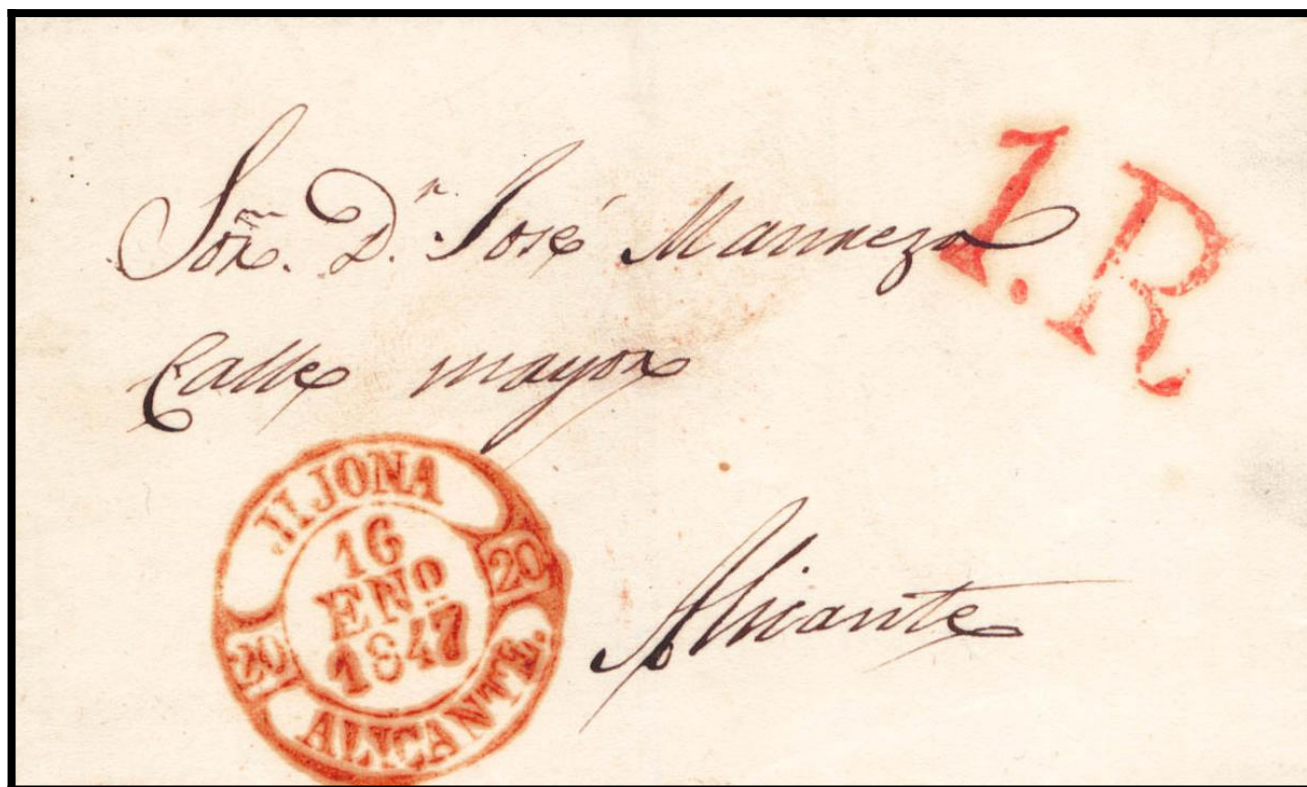 Sor. Dn. José Mannezo
1.R
Calle mayor
IIJONA
16
ENO
1847
20
20
ALICANTE.
Alicante